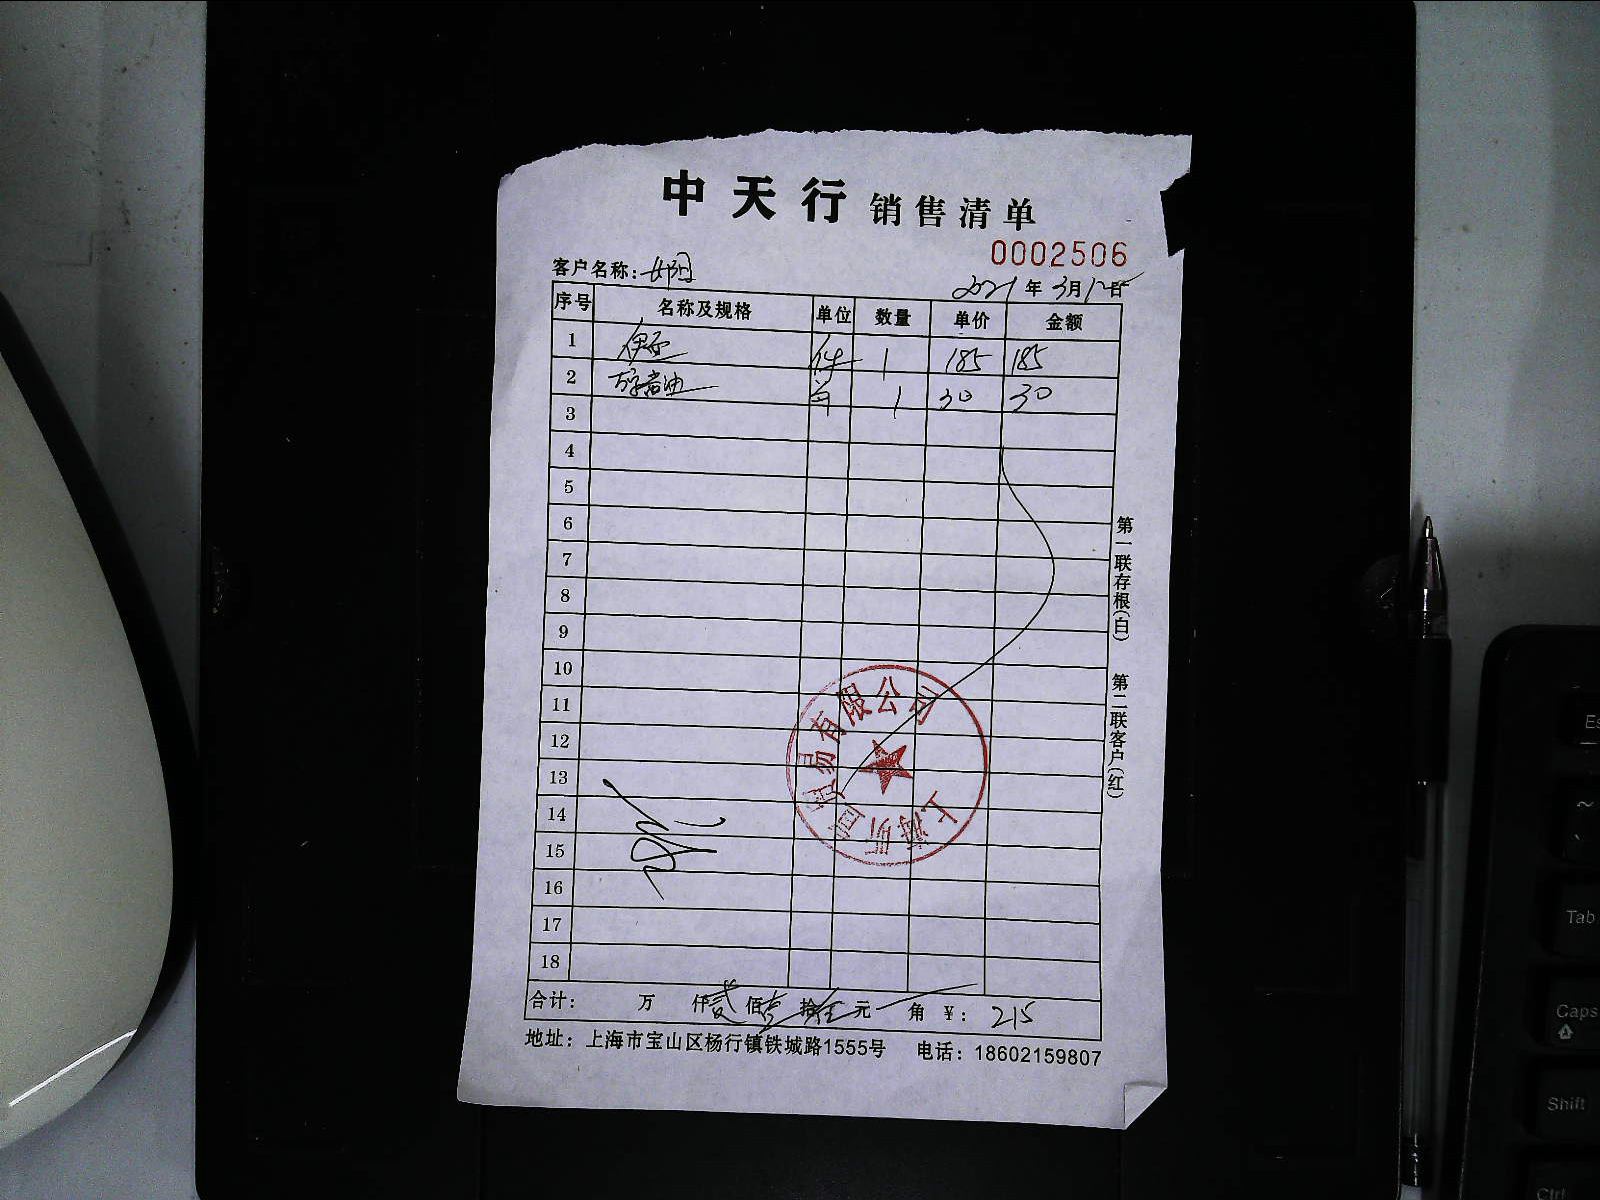 中天行 销售清单
0002506
客户名称:
2021年3月12日
序号 名称及规格 单位 数量 单价 金额
1 件 1 185 185
2 1 30 30
3
4
5
6
7
8
9
10
11
12
13
14
15
16
17
18
合计: 万 仟贰佰壹拾伍元 角 ¥: 215
地址: 上海市宝山区杨行镇铁城路1555号 电话: 18602159807
第一联存根(白) 第二联客户(红)
贸易有限公司
Tab
Caps
Shift
Ctrl